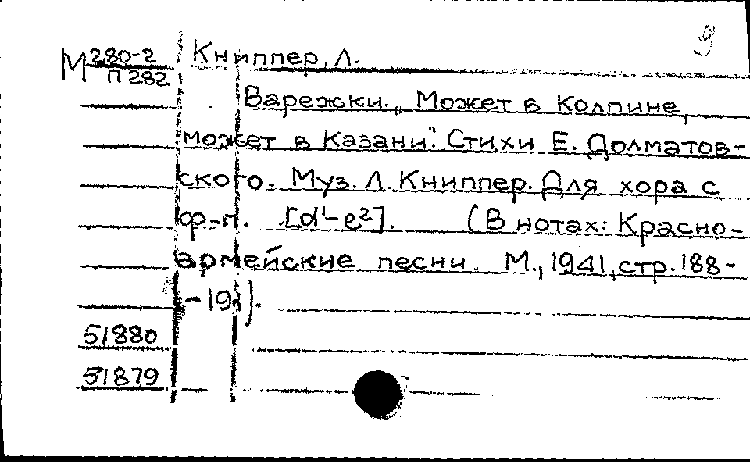 9
М 280-2 Книппер, Л.
П 282
Варежки. „Может в Колпине,
может в Казани". Стихи Е. Долматов-
ского. Муз. Л. Книппер. Для хора с
ф-п. [d¹-e²]. (В нотах: Красно-
армейские песни. М., 1941, стр. 188-
51880
51879